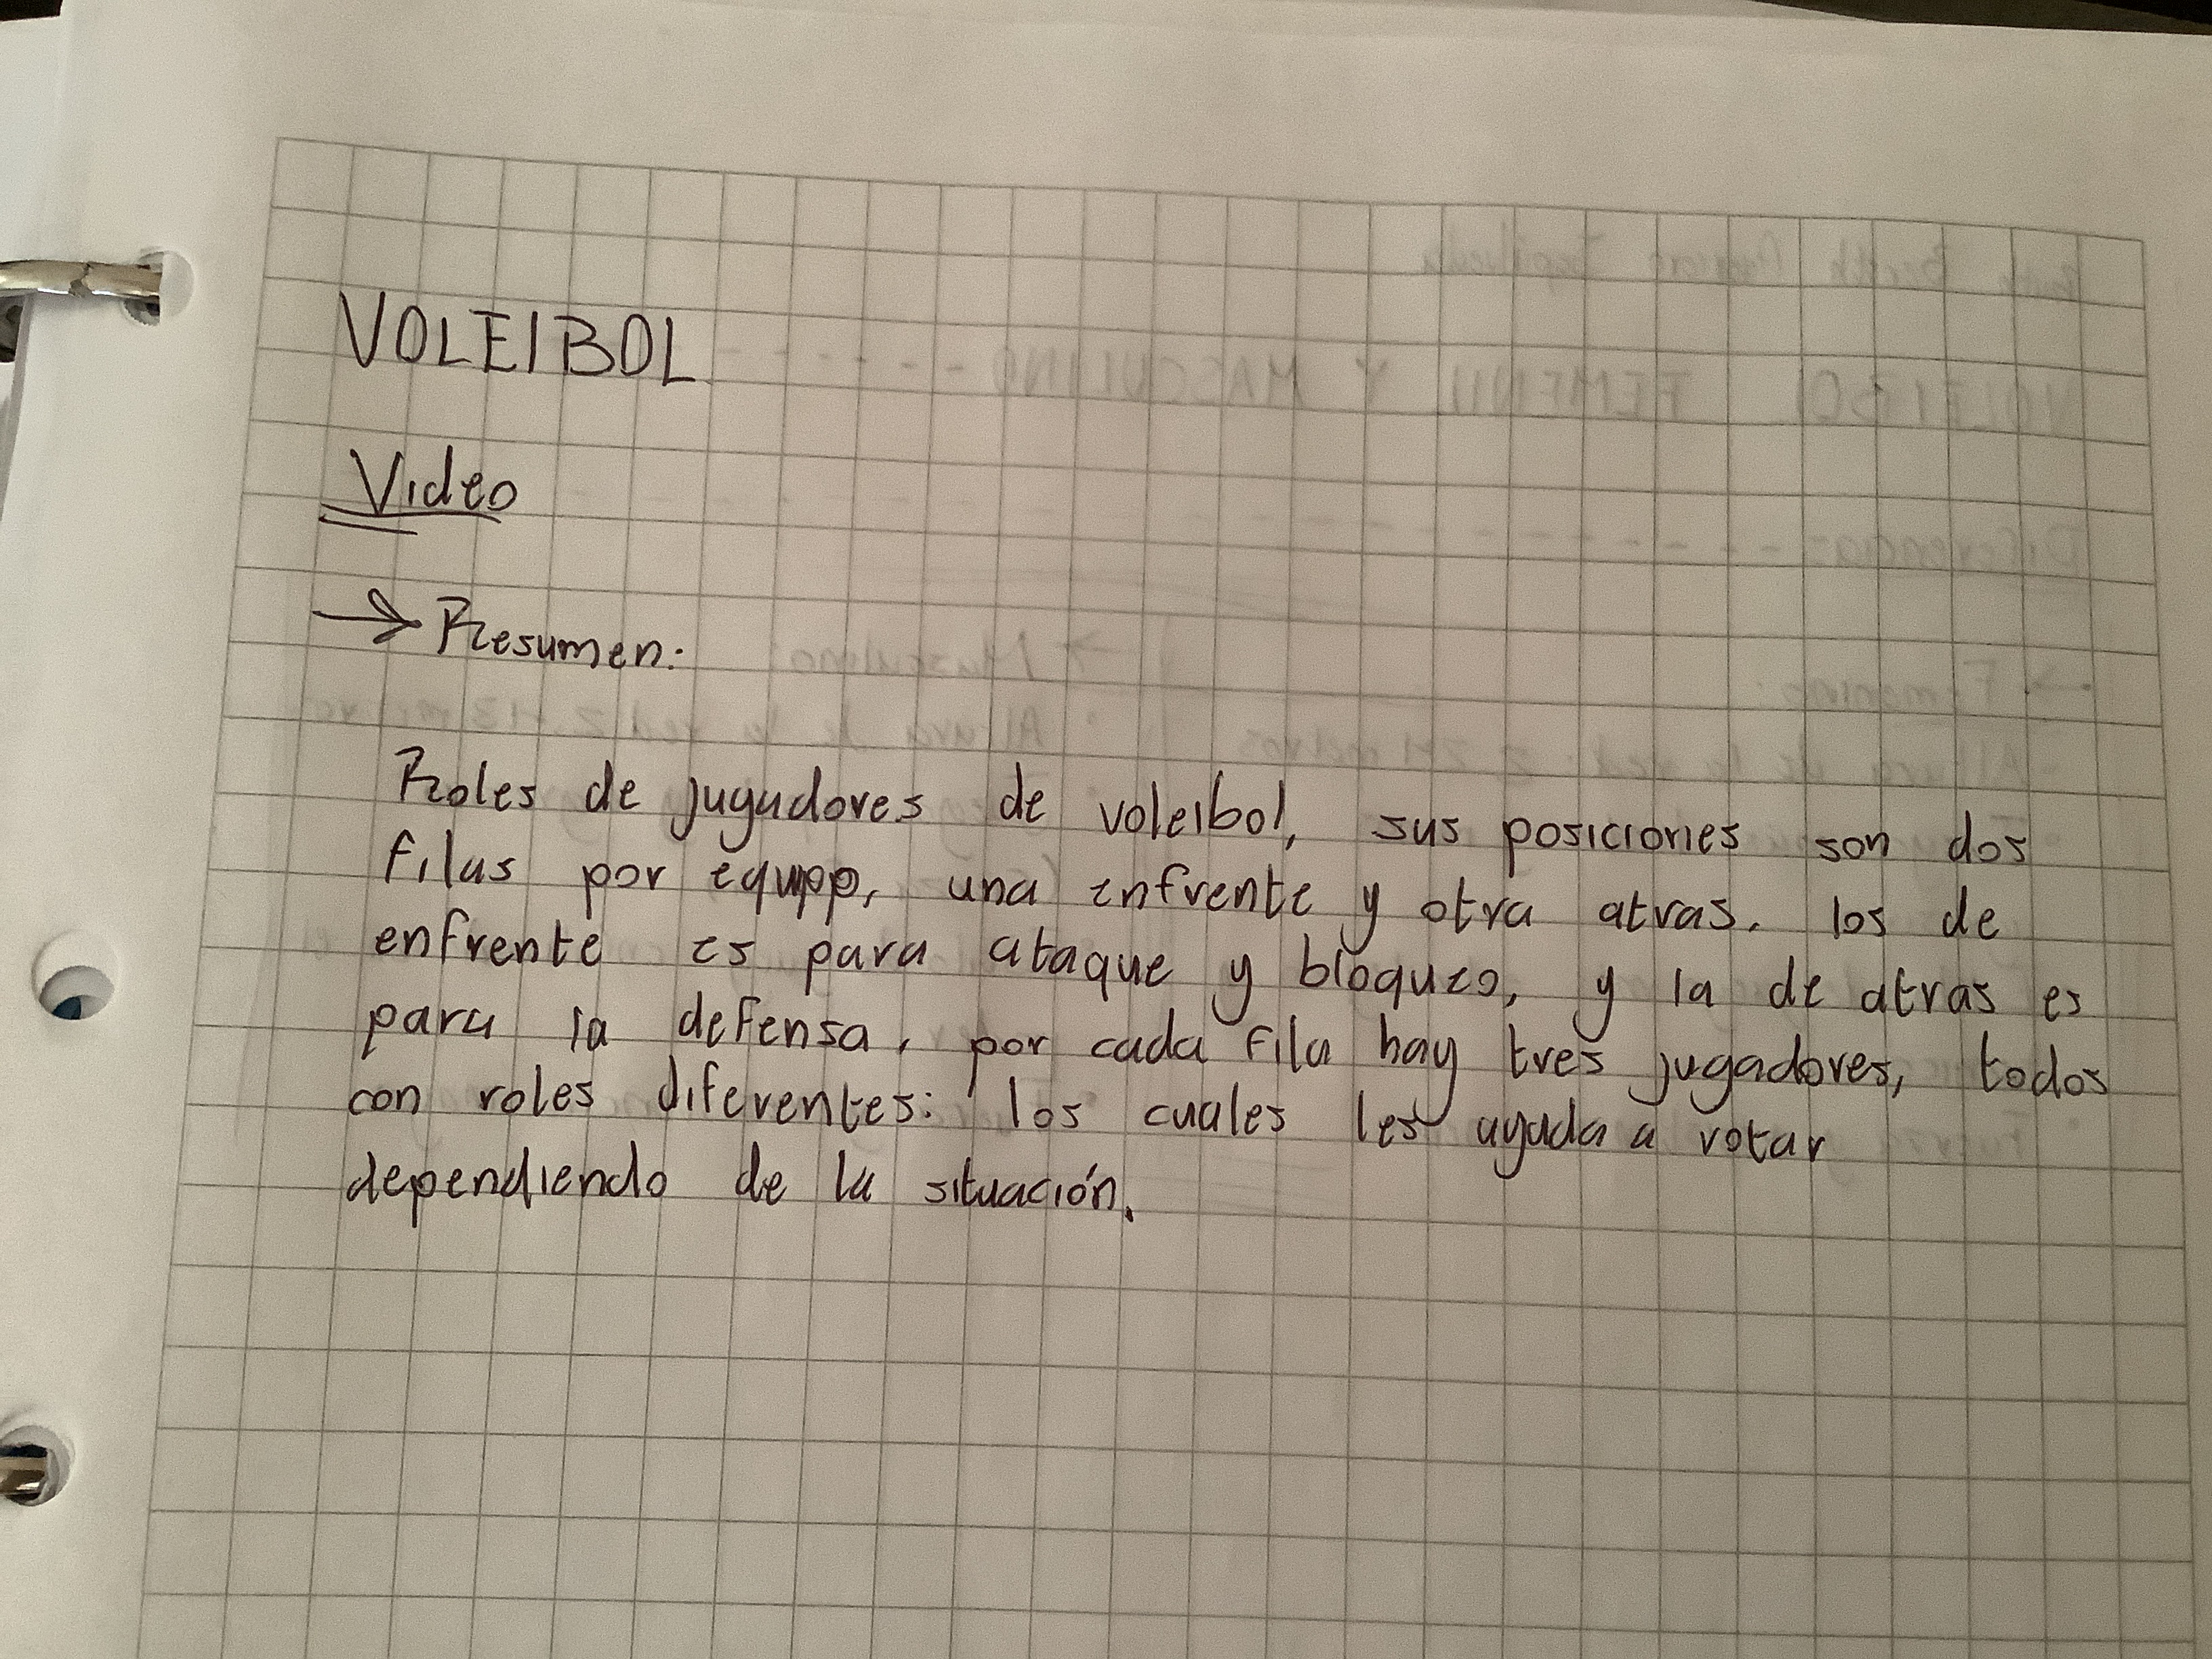 VOLEIBOL
Video
→ Resumen:
Roles de jugadores de voleibol, sus posiciones son dos
filas por equipo, una enfrente y otra atras. los de
enfrente es para ataque y bloqueo, y la de atras es
para la defensa. por cada fila hay tres jugadores, todos
con roles diferentes: los cuales les ayuda a rotar
dependiendo de la situación.